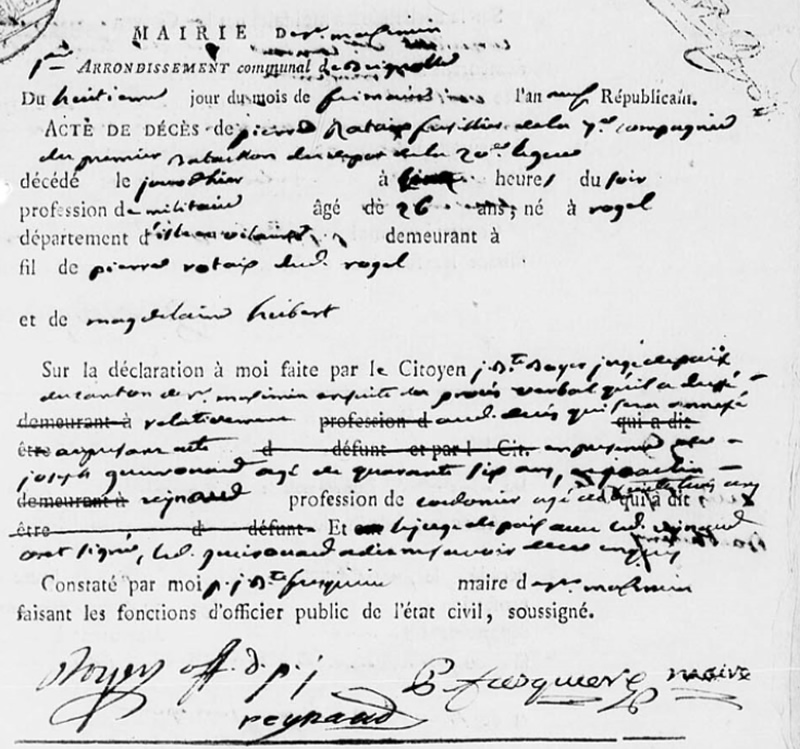 MAIRIE De St. maximin
1er ARRONDISSEMENT communal de Brignolle
Du huitieme jour du mois de frimaire l'an neuf Républicain.
ACTE DE DÉCÈS de pierre Rataix fusillier de la 7e. compagnie
du premier Bataillon du depot de la 20e. legere
décédé le jourd'hier à heures du soir
profession de militaire âgé de 26 ans, né à rogel
département d'isle en vilaine demeurant à
fil de pierre rotaix dud. rogel
et de magdelaine heibert
Sur la déclaration à moi faite par le Citoyen j. Bte. Boyer juge de paix
du canton de St. maximin ensuite du procès verbal qu'il a dressé
demeurant à relativement profession d aud. decès qui sera annexé
être au présent acte d défunt et par l Cit. en presence
joseph âgé de quarante six ans,
demeurant à reynaud profession de cordonnier agé de qui a dit
être d défunt Et le juge de paix avec led. reinaud
ont signé, led. a dit ne savoir de ce enquis
Constaté par moi p. j. Bte. fusquiere maire de St. maximin
faisant les fonctions d'officier public de l'état civil, soussigné.
Boyer off. d. p. j fusquiere maire
reynaud